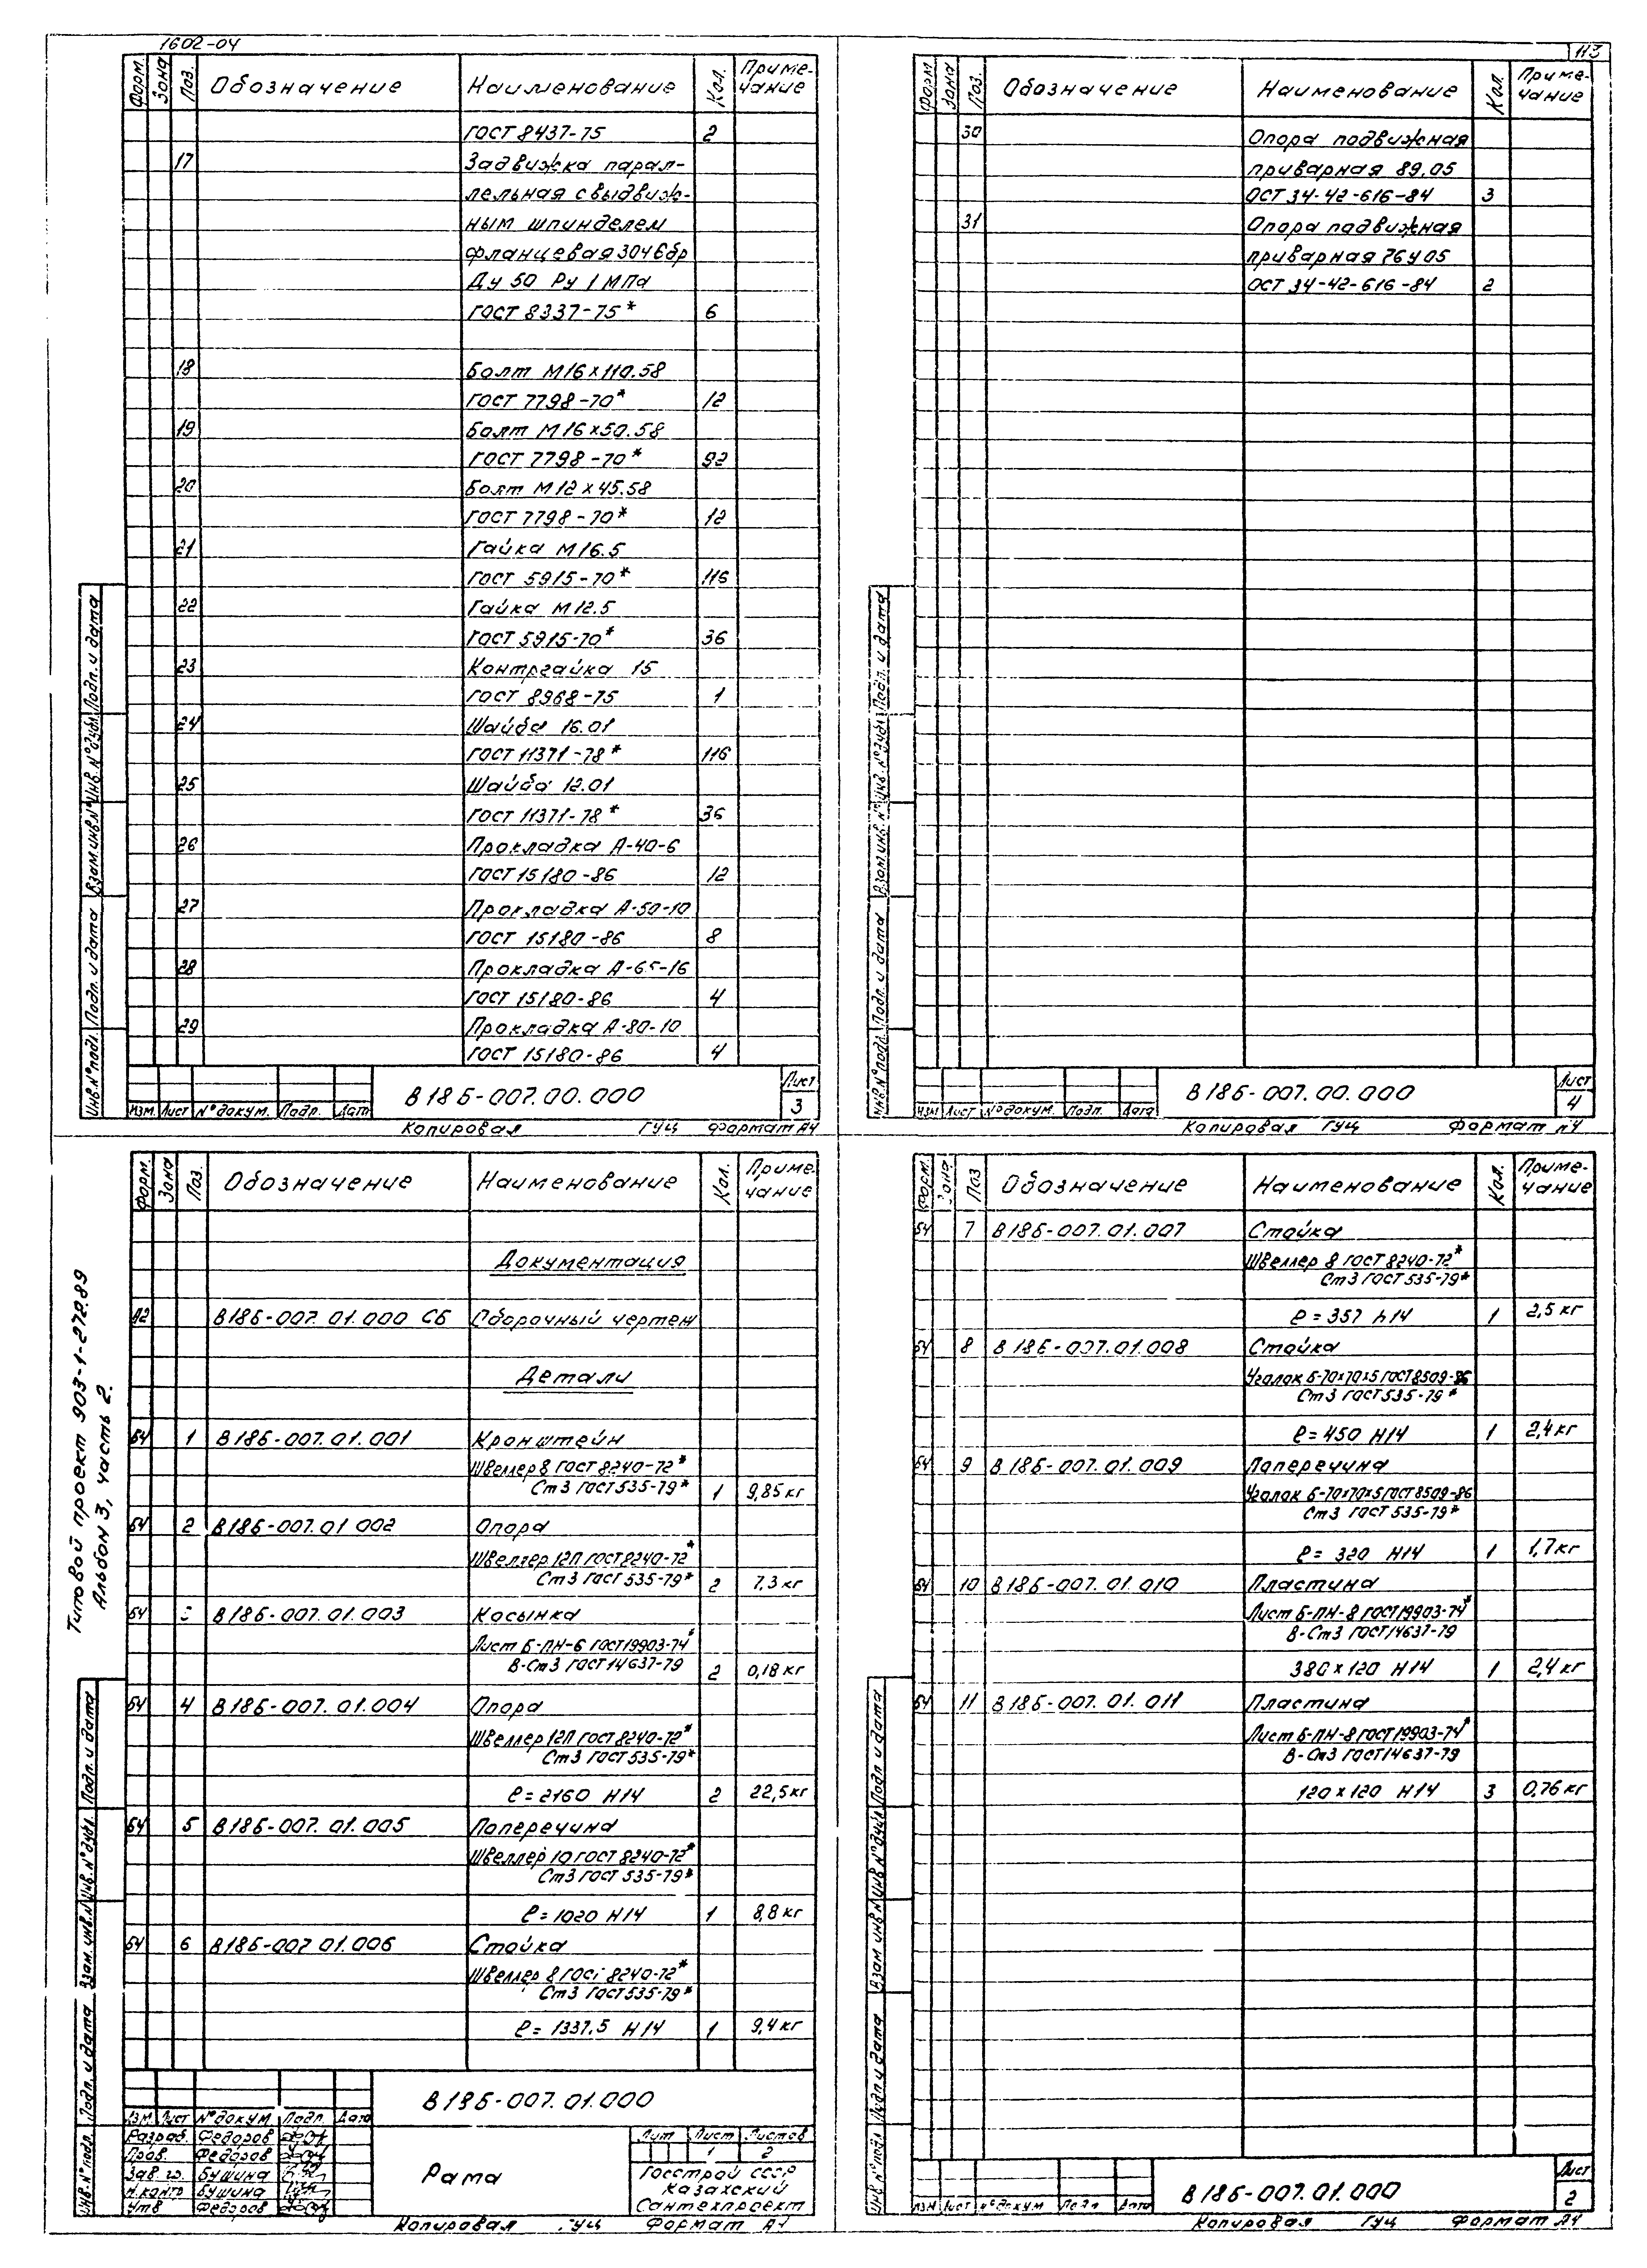 1602-04
Форм. Зона Поз. Обозначение Наименование Кол. Приме-
чание
ГОСТ 8437-75 2
17 Задвижка парал-
лельная с выдвиж-
ным шпинделем
фланцевая 30ч6бр
Ду 50 Ру 1 МПа
ГОСТ 8337-75* 6
18 Болт М16×110.58
ГОСТ 7798-70* 12
19 Болт М16×50.58
ГОСТ 7798-70* 92
20 Болт М12×45.58
ГОСТ 7798-70* 12
21 Гайка М16.5
ГОСТ 5915-70* 116
22 Гайка М12.5
ГОСТ 5915-70* 36
23 Контргайка 15
ГОСТ 8968-75 1
24 Шайба 16.01
ГОСТ 11371-78* 116
25 Шайба 12.01
ГОСТ 11371-78* 36
26 Прокладка А-40-6
ГОСТ 15180-86 12
27 Прокладка А-50-10
ГОСТ 15180-86 8
28 Прокладка А-65-16
ГОСТ 15180-86 4
29 Прокладка А-80-10
ГОСТ 15180-86 4
Инв.№подл. Подп. и дата Взам.инв.№ Инв.№дубл. Подп. и дата
В186-007.00.000 Лист
3
Изм. Лист №докум. Подп. Дата
Копировал ГУЦ Формат А4
113
Форм. Зона Поз. Обозначение Наименование Кол. Приме-
чание
30 Опора подвижная
приварная 89.05
ОСТ 34-42-616-84 3
31 Опора подвижная
приварная 76у05
ОСТ 34-42-616-84 2
Инв.№подл. Подп. и дата Взам.инв.№ Инв.№дубл. Подп. и дата
В186-007.00.000 Лист
4
Изм Лист №докум. Подп. Дата
Копировал ГУЦ Формат А4
Типовой проект 903-1-272.89
Альбом 3, часть 2.
Форм. Зона Поз. Обозначение Наименование Кол. Приме-
чание
Документация
А2 В186-007.01.000 СБ Сборочный чертеж
Детали
БЧ 1 В186-007.01.001 Кронштейн
Швеллер 8 ГОСТ 8240-72*
Ст3 ГОСТ 535-79* 1 9,85 кг
БЧ 2 В186-007.01.002 Опора
Швеллер 12П ГОСТ 8240-72*
Ст3 ГОСТ 535-79* 2 7,3 кг
БЧ 3 В186-007.01.003 Косынка
Лист Б-ПН-6 ГОСТ 19903-74*
В-Ст3 ГОСТ 14637-79 2 0,18 кг
БЧ 4 В186-007.01.004 Опора
Швеллер 12П ГОСТ 8240-72*
Ст3 ГОСТ 535-79*
ℓ=2160 Н14 2 22,5 кг
БЧ 5 В186-007.01.005 Поперечина
Швеллер 10 ГОСТ 8240-72*
Ст3 ГОСТ 535-79*
ℓ=1020 Н14 1 8,8 кг
БЧ 6 В186-007.01.006 Стойка
Швеллер 8 ГОСТ 8240-72*
Ст3 ГОСТ 535-79*
ℓ=1337,5 Н14 1 9,4 кг
Инв.№подл. Подп. и дата Взам.инв.№ Инв.№дубл. Подп. и дата
В186-007.01.000
Изм. Лист №докум. Подп. Дата
Разраб. Федоров
Пров. Федоров
Зав. гр. Бушина
Н.контр Бушина
Утв Федоров
Рама
Лит Лист Листов
1 2
Госстрой СССР
Казахский
Сантехпроект
Копировал ГУЦ Формат А4
Форм. Зона Поз Обозначение Наименование Кол. Приме-
чание
БЧ 7 В186-007.01.007 Стойка
Швеллер 8 ГОСТ 8240-72*
Ст3 ГОСТ 535-79*
ℓ=357 h14 1 2,5 кг
БЧ 8 В186-007.01.008 Стойка
Уголок Б-70×70×5 ГОСТ 8509-86
Ст3 ГОСТ 535-79*
ℓ=450 Н14 1 2,4 кг
БЧ 9 В186-007.01.009 Поперечина
Уголок Б-70×70×5 ГОСТ 8509-86
Ст3 ГОСТ 535-79*
ℓ= 320 Н14 1 1,7 кг
БЧ 10 В186-007.01.010 Пластина
Лист Б-ПН-8 ГОСТ 19903-74*
В-Ст3 ГОСТ 14637-79
380×120 Н14 1 2,4 кг
БЧ 11 В186-007.01.011 Пластина
Лист Б-ПН-8 ГОСТ 19903-74*
В-Ст3 ГОСТ 14637-79
120×120 Н14 3 0,76 кг
Инв №подл Подп и дата Взам инв № Инв №дубл Подп и дата
В186-007.01.000 Лист
2
Изм Лист №докум Подп Дата
Копировал ГУЦ Формат А4